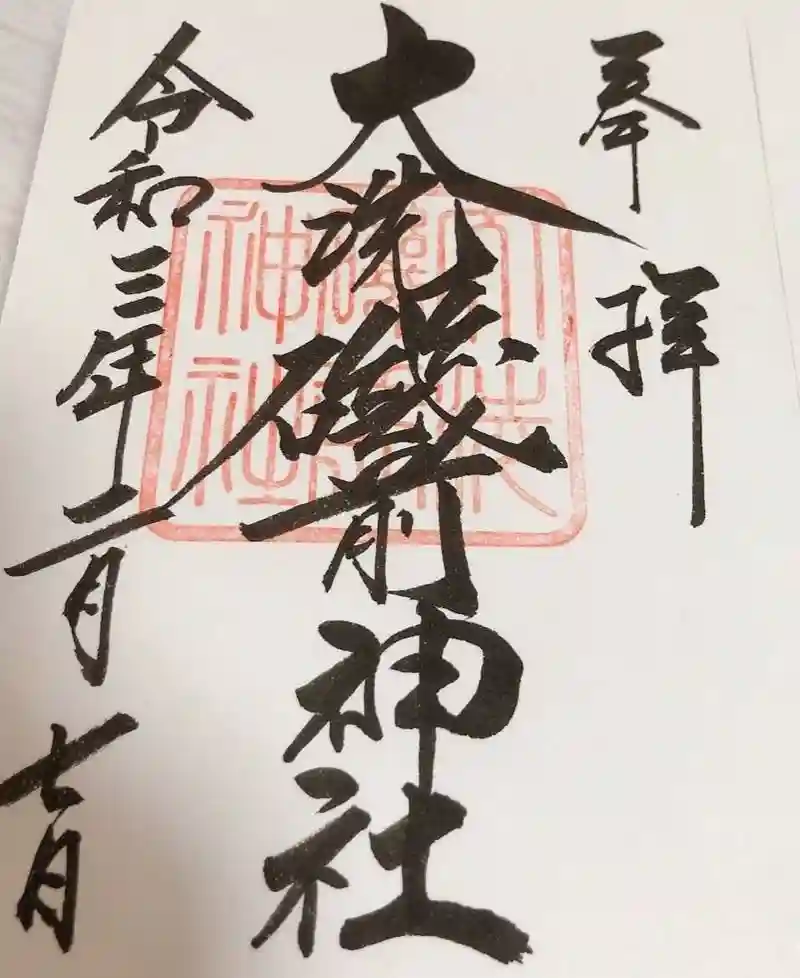 奉拝
大洗磯前神社
令和三年二月七日
大洗
磯前
神社